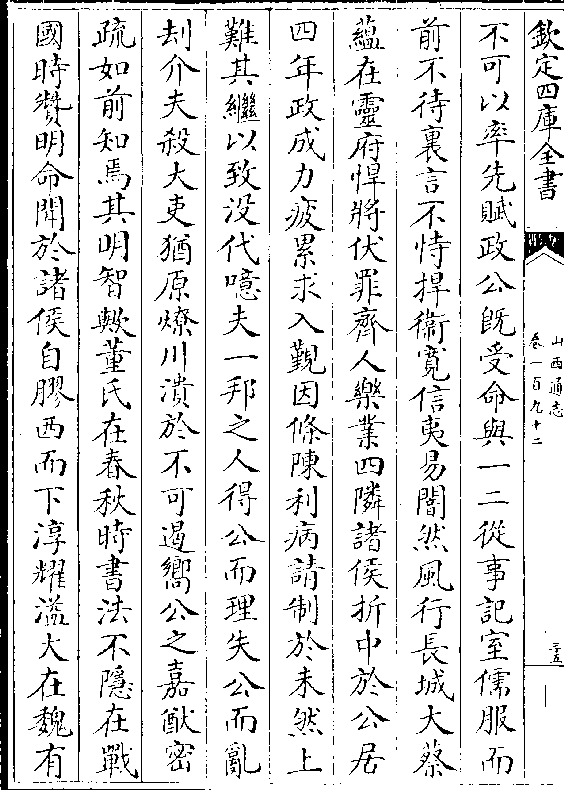 欽定四庫全書
山西通志
卷一百九十二
三五
不可以率先賦政公既受命與一二從事記室儒服而
前不待裹言不恃捍衞寛信夷易闇然風行長城大蔡
蘊在靈府悍將伏罪齊人樂業四隣諸侯折中於公居
四年政成力疲累求入覲因條陳利病請制於未然上
難其繼以致没代噫夫一邦之人得公而理失公而亂
刦介夫殺大吏猶原燎川潰於不可遏嚮公之嘉猷密
疏如前知焉其明智歟董氏在春秋時書法不隱在戰
國時贊明命聞於諸侯自膠西而下淳耀溢大在魏有